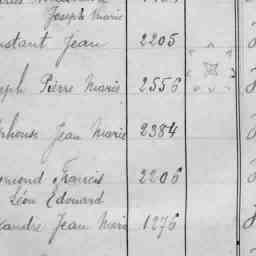 Joseph Marie
nstant Jean 2205
seph Pierre Marie 2556
phonse Jean Marie 2384
ymond Francis 2206
Léon Edouard
xandre Jean Marie 1276